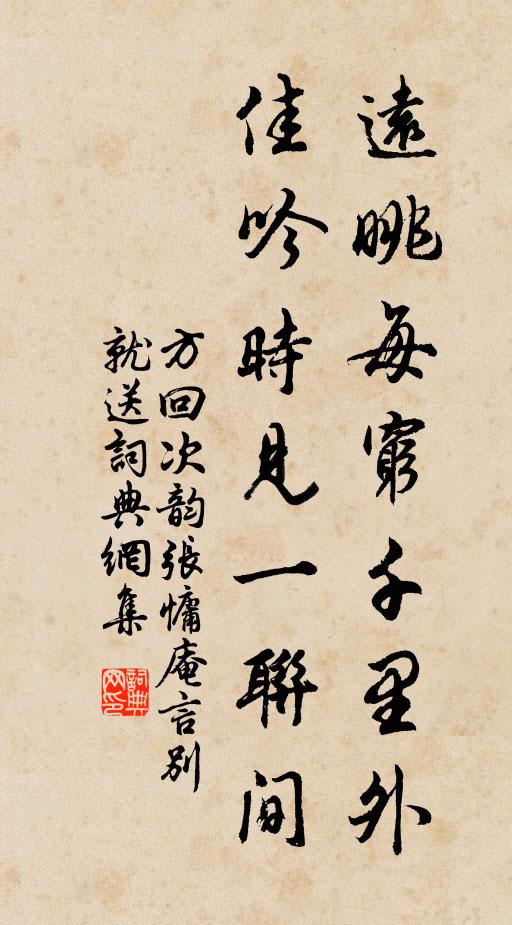 遠眺每窮千里外
佳吟時見一聯间
方回次韵張慵庵言别
就送詞典網集
詞典網印